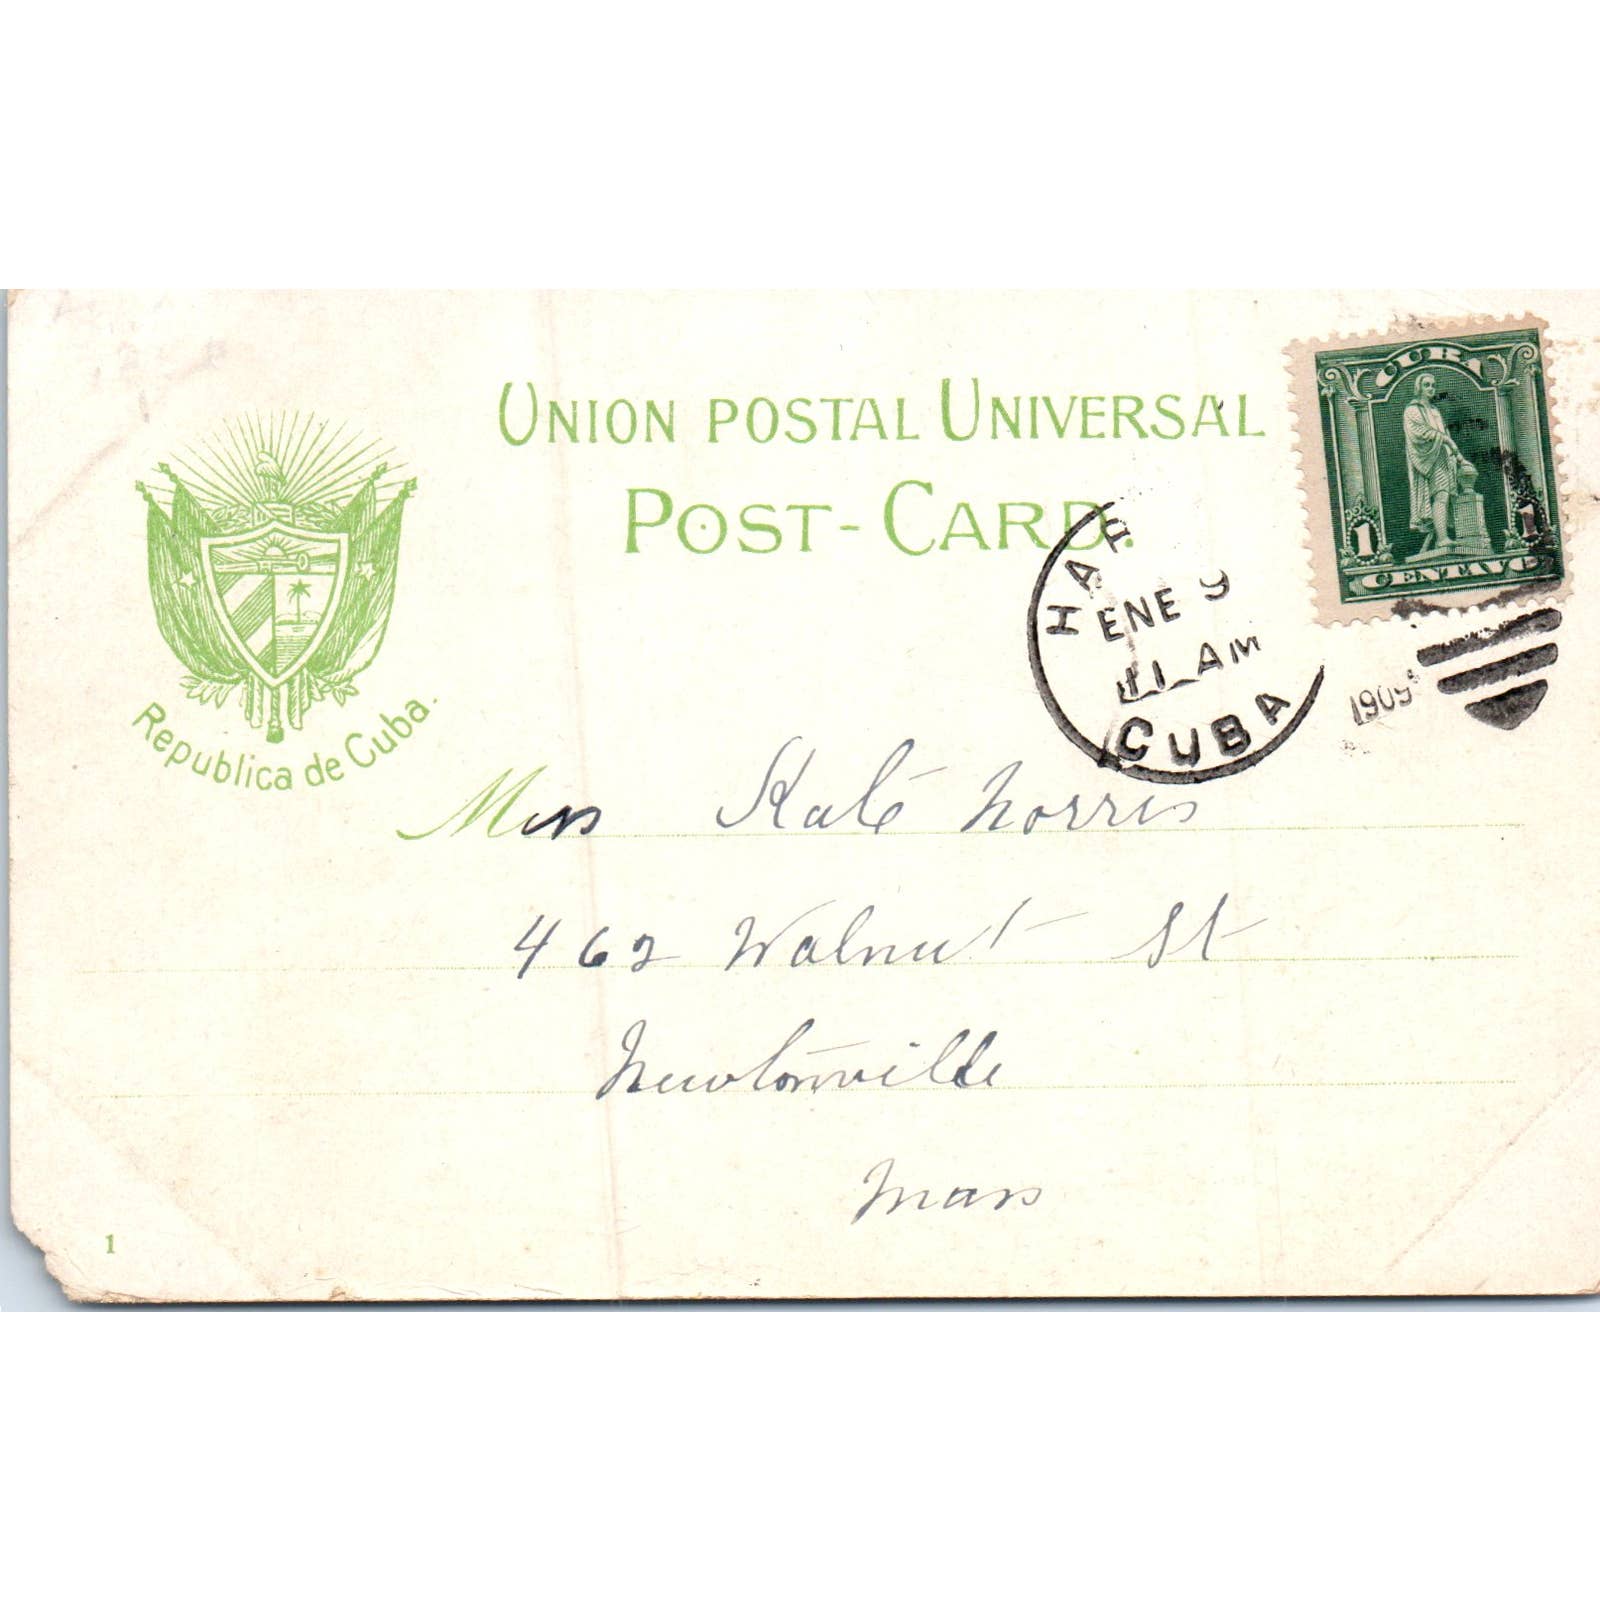 UNION POSTAL UNIVERSAL
POST-CARD.
CUBA
1 1
CENTAVO
HA
ENE 9
11 AM
CUBA
1909
Republica de Cuba.
Miss Kate Norris
462 Walnut St
Newtonville
Mass
1